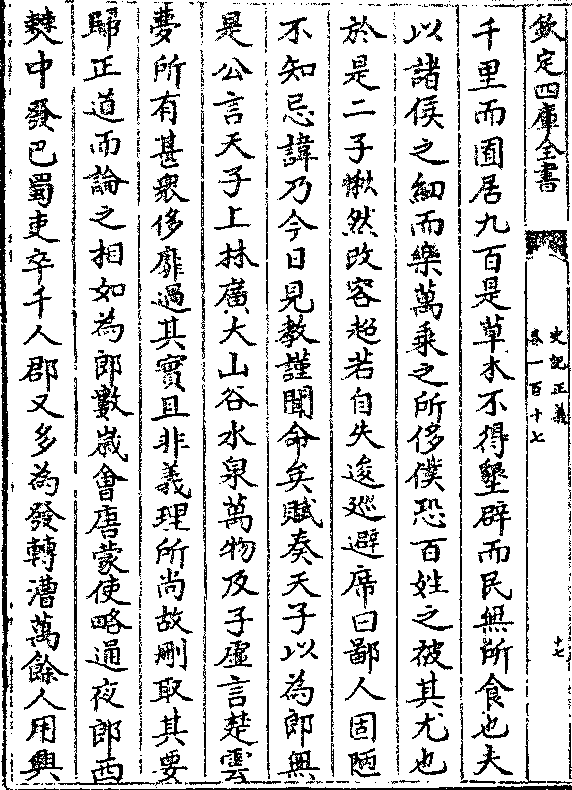 欽定四庫全書
史記正義
卷一百十七
十七
千里而囿居九百是草木不得墾辟而民無所食也夫
以諸侯之細而樂萬乘之所侈僕恐百姓之被其尤也
於是二子愀然改容超若自失逡巡避席曰鄙人固陋
不知忌諱乃今日見教謹聞命矣賦奏天子以為郎無
是公言天子上林廣大山谷水泉萬物及子虛言楚雲
夢所有甚衆侈靡過其實且非義理所尚故刪取其要
歸正道而論之相如為郎數歲會唐蒙使略通夜郎西
僰中發巴蜀吏卒千人郡又多為發轉漕萬餘人用興